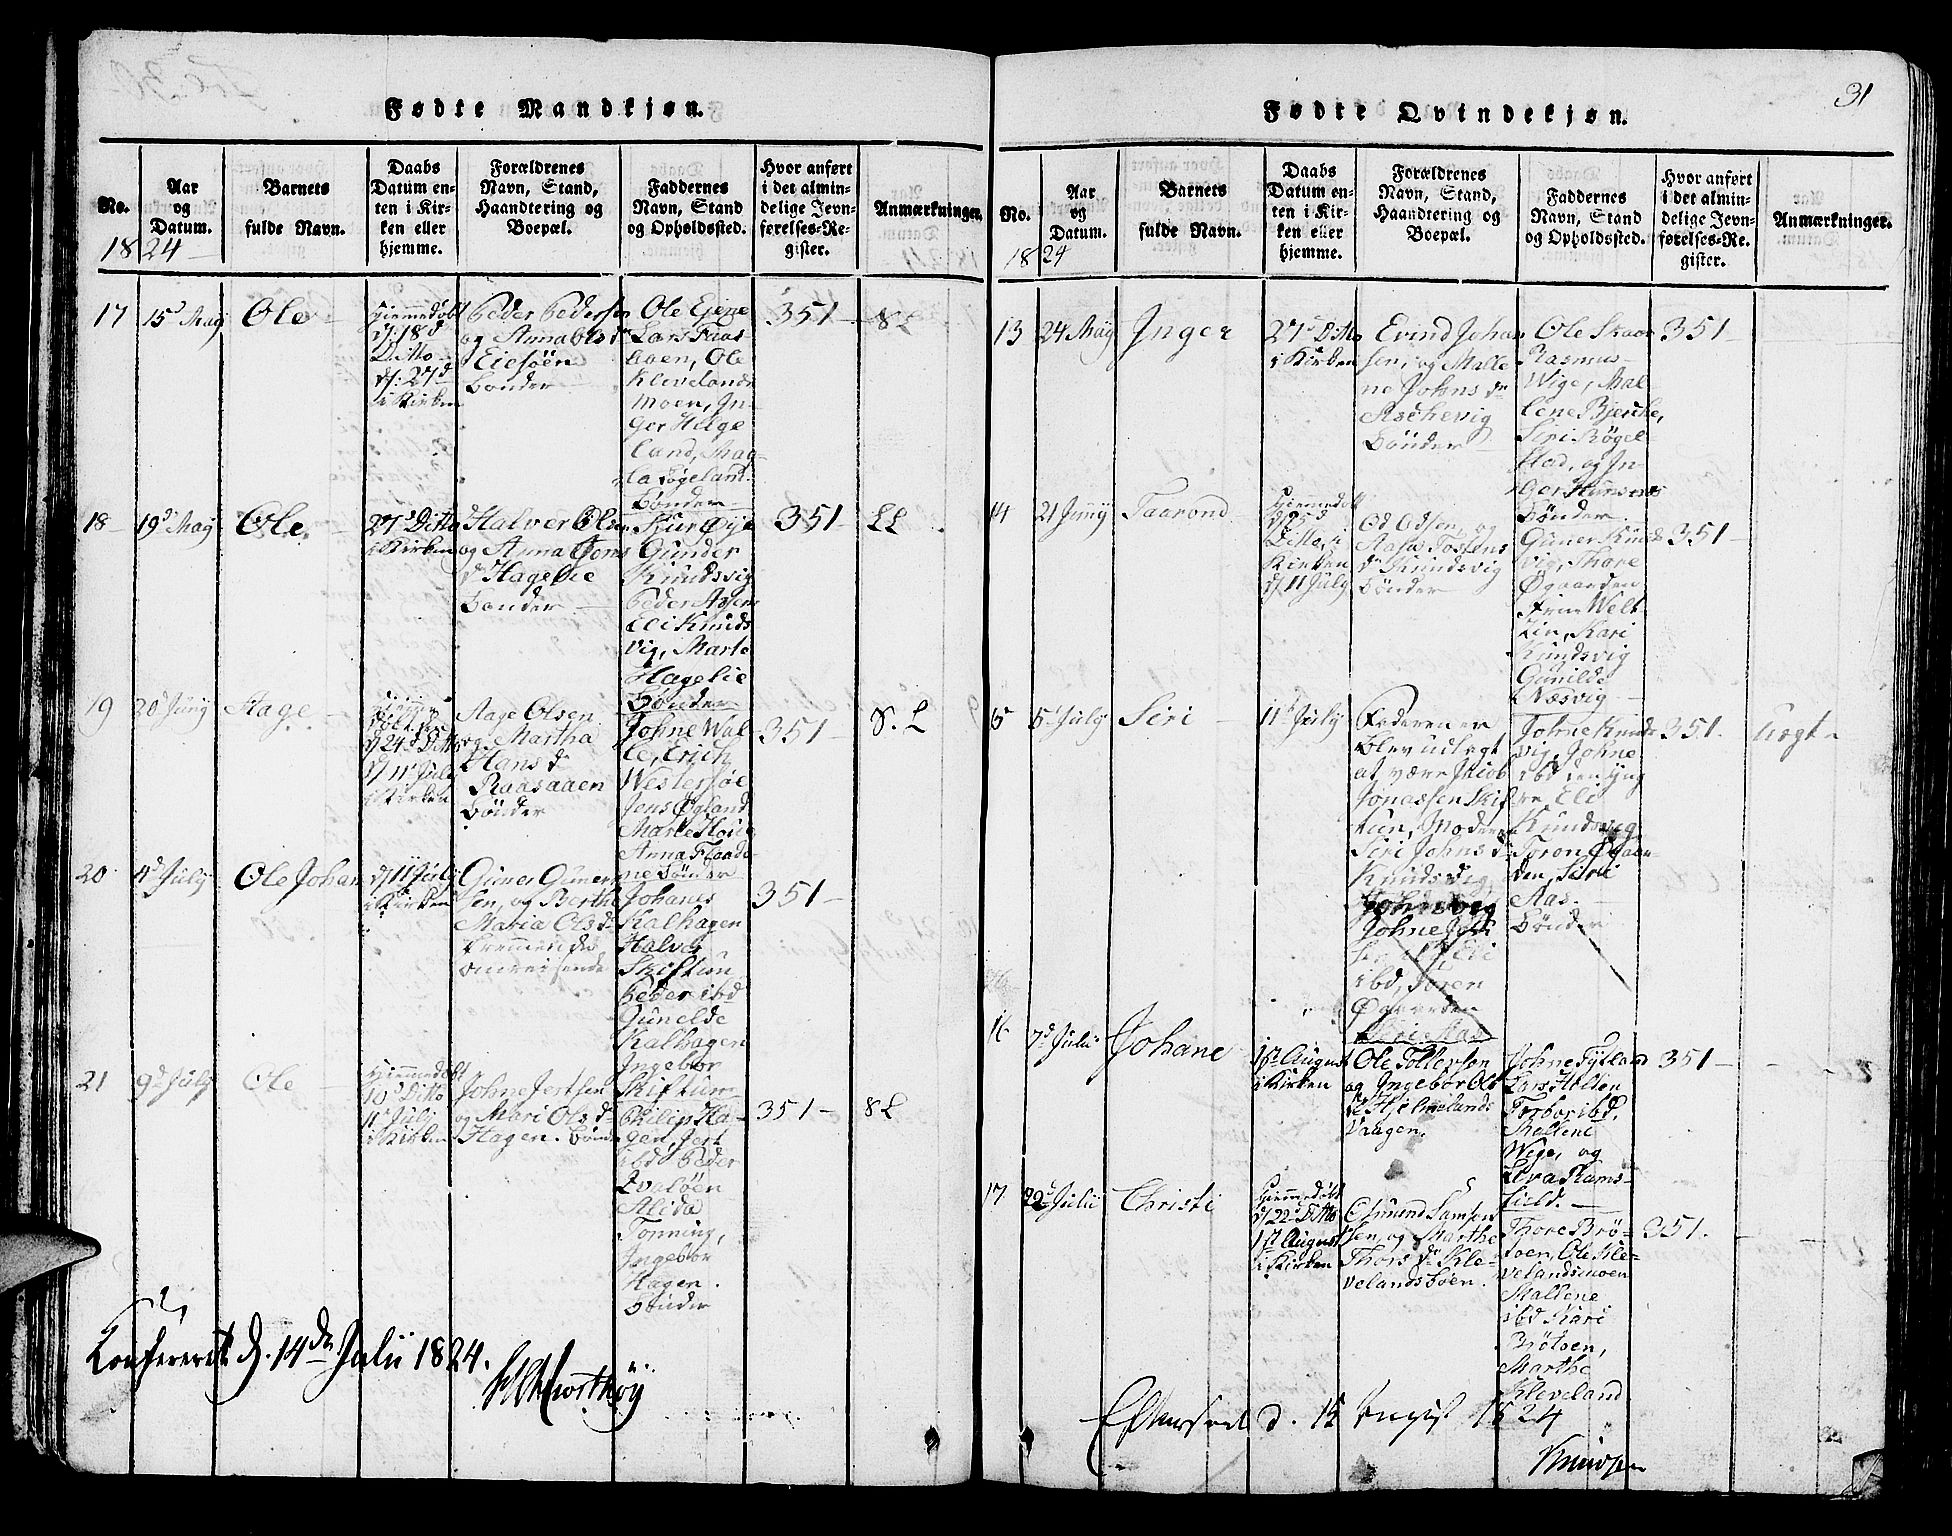 Fødte Mandkjøn.
No.
Aar
og
Datum.
Barnets
fulde Navn.
Daabs
Datum en-
ten i Kir-
ken eller
hjemme.
Forældrenes
Navn, Stand,
Haandtering og
Boepæl.
Faddernes
Navn, Stand
og Opholdssted.
Hvor anført
i det almin-
delige Jevn-
førelses-Re-
gister.
Anmærkninger.
1824
17
15d May
Ole
Hiemmedøbt
d: 18d
Ditto
d: 27d
i Kirken
Peder Pedersen
og Anna Ols d
Eiesøen
Bønder
Ole Ejene
Lars Faas-
boen, Ole
Klevelands
moen, In-
ger Helge
land, Mag-
la Bøgeland.
Bønder
351
18
19d May
Ole
27d Ditto
i Kirken
Halver Olsen
og Anna Jons
d Hagelie
Bønder
Gunder
Knudsvig
Peder
Eli Knuds
vig, Marte
Hagelie
Bønder
351
LL
19
20d Juny
Aage
d 24d Ditto
d 11d July
i Kirken
Aage Olsen
og Martha
Hans d
Raasaaen
Bønder
Johne Wal
le, Erich
Westersøe
Jens Øgland
Marte
Anna Flaade-
ne Bønder
351
S. L
20
4d July
Ole Johan
d 11 July
i Kirken
Guner Guner
sen, og Berthe
Maria Ols d
Fremmendes
omreisende
Johanes
Kalhagen
Halver
Skiftun
Peder ibd
Gunelde
Kalhagen
Ingebor
Skiftun
351
21
9d July
Ole
Hiemmedøbt
10d Ditto
11d July
i Kirken
Johne Jertsen
og Mari Ols d
Hagen. Bønder
Philip Ha-
gen, Jert
ibd Peder
Alida
Tonning,
Ingebor
Hagen.
Bønder
351
Confereret d. 14de Julii 1824.
31
Fødte Qvindekjøn.
No.
Aar
og
Datum.
Barnets
fulde Navn.
Daabs
Datum en-
ten i Kir-
ken eller
hjemme.
Forældrenes
Navn, Stand,
Haandtering og
Boepæl.
Faddernes
Navn, Stand
og Opholdssted.
Hvor anført
i det almin-
delige Jevn-
førelses-Re-
gister.
Anmærkninger.
1824
13
24 May
Inger
27d Ditto
i Kirken
Evind Johan
sen, og Malle
ne Johns d
Aschevig
Bønder
Ole Skaar
Rasmus
Wige, Mal-
lene Bjerche,
Siri Bøgel-
stad, og In-
ger
Bønder.
351
14
21 Juny
Taarond
Hiemmedøbt
d 25d
Ditto, i
Kirken
d 11 July
Od Odsen, og
Aasa Tostens
d Knudsvig
Bønder
Guner Knuds
vig, Thore
Øgaarden
Kari
Knudsvig
Gunilde
Næsvig
351
15
5d July
Siri
11d July
Faderen er
Blev udlagt
at være Jacob
Jonassen Skif
tun, Moder
Siri Johns d
Knudsvig,
Johne Knuds
vig, Johne
ibd den yng
re, Eli
Knudsvig
Toron Øgaar-
den, Siri
Aas.
Bønder
351.
16
7d Julii
Johane
1st August
i Kirken
Ole Tollefsen
og Ingebor Ols
d Hjelmelands
Vaagen.
Johne Fytland
Lars Holten
Torbor ibd,
Mallene
Wige, og
Eva Rams-
field.
351
17
22d Julii
Christi
Hiemmedøbt
d 22d Ditto
1st August
i Kirken
Osmund Samson
sen, og Marthe
Thors d Kle-
velandsboen.
Thore Brø-
toen, Ole Kle-
velandsmoen
Mallene
ibd Kari
Brøtoen,
Marthe
Kleveland
351.
Efterseet d. 15 August 1824